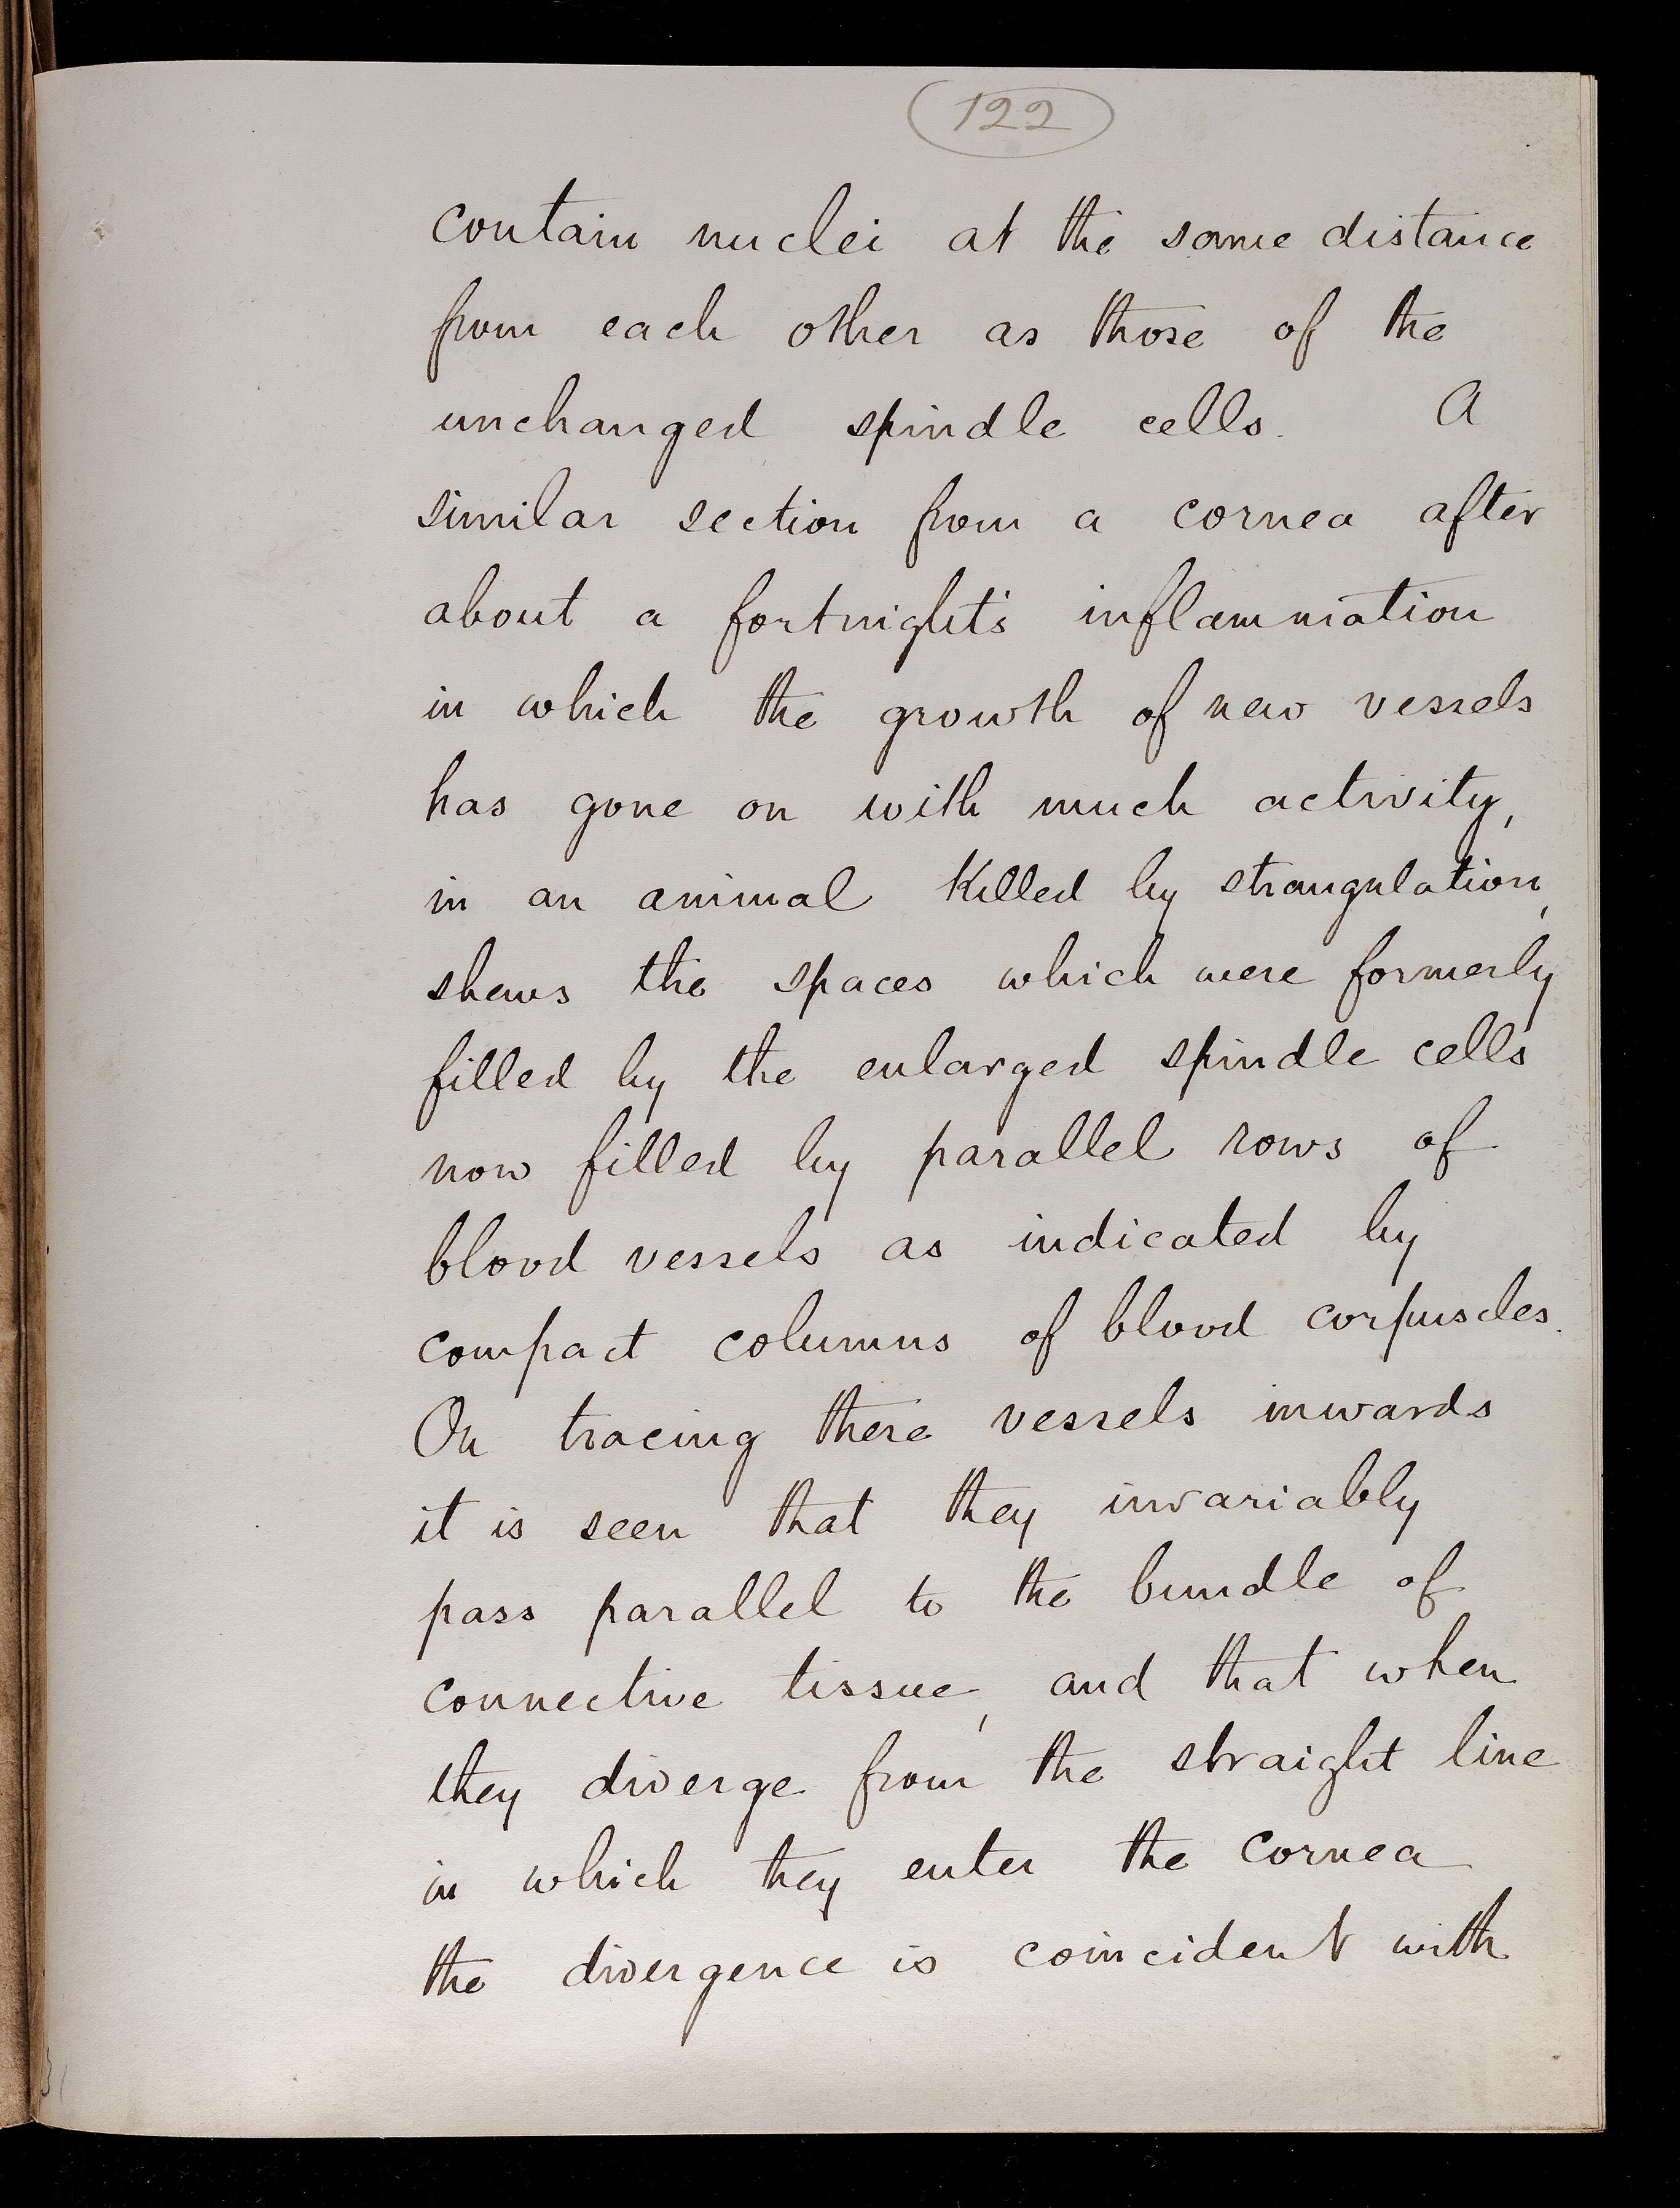 122
contain nuclei at the same distance
from each other as those of the
unchanged spindle cells. A
similar section from a cornea after
about a fortnight's inflammation
in which the growth of new vessels
has gone on with much activity,
in an animal killed by strangulation,
shews the spaces which were formerly
filled by the enlarged spindle cells
now filled by parallel rows of
blood vessels as indicated by
compact columns of blood corpuscles.
On tracing these vessels inwards
it is seen that they invariably
pass parallel to the bundle of
connective tissue, and that when
they diverge from the straight line
in which they enter the cornea
the divergence is coincident with